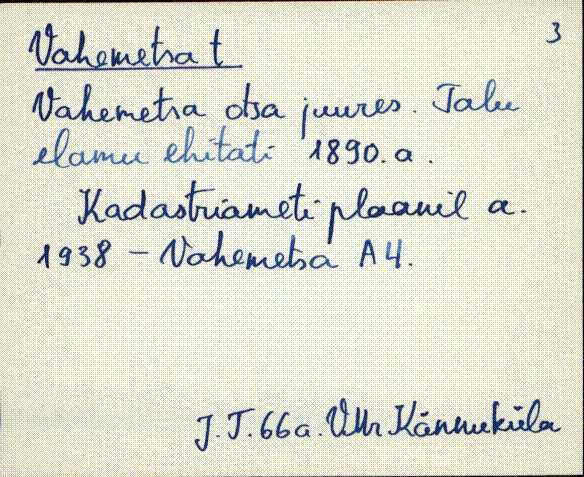 3
Vahemetsa t
Vahemetsa otsa juures. Talu
elamu ehitati 1890. a.
Kadastriameti plaanil a.
1938 - Vahemetsa A4.
J. T. 66 a. VMr Kännuküla